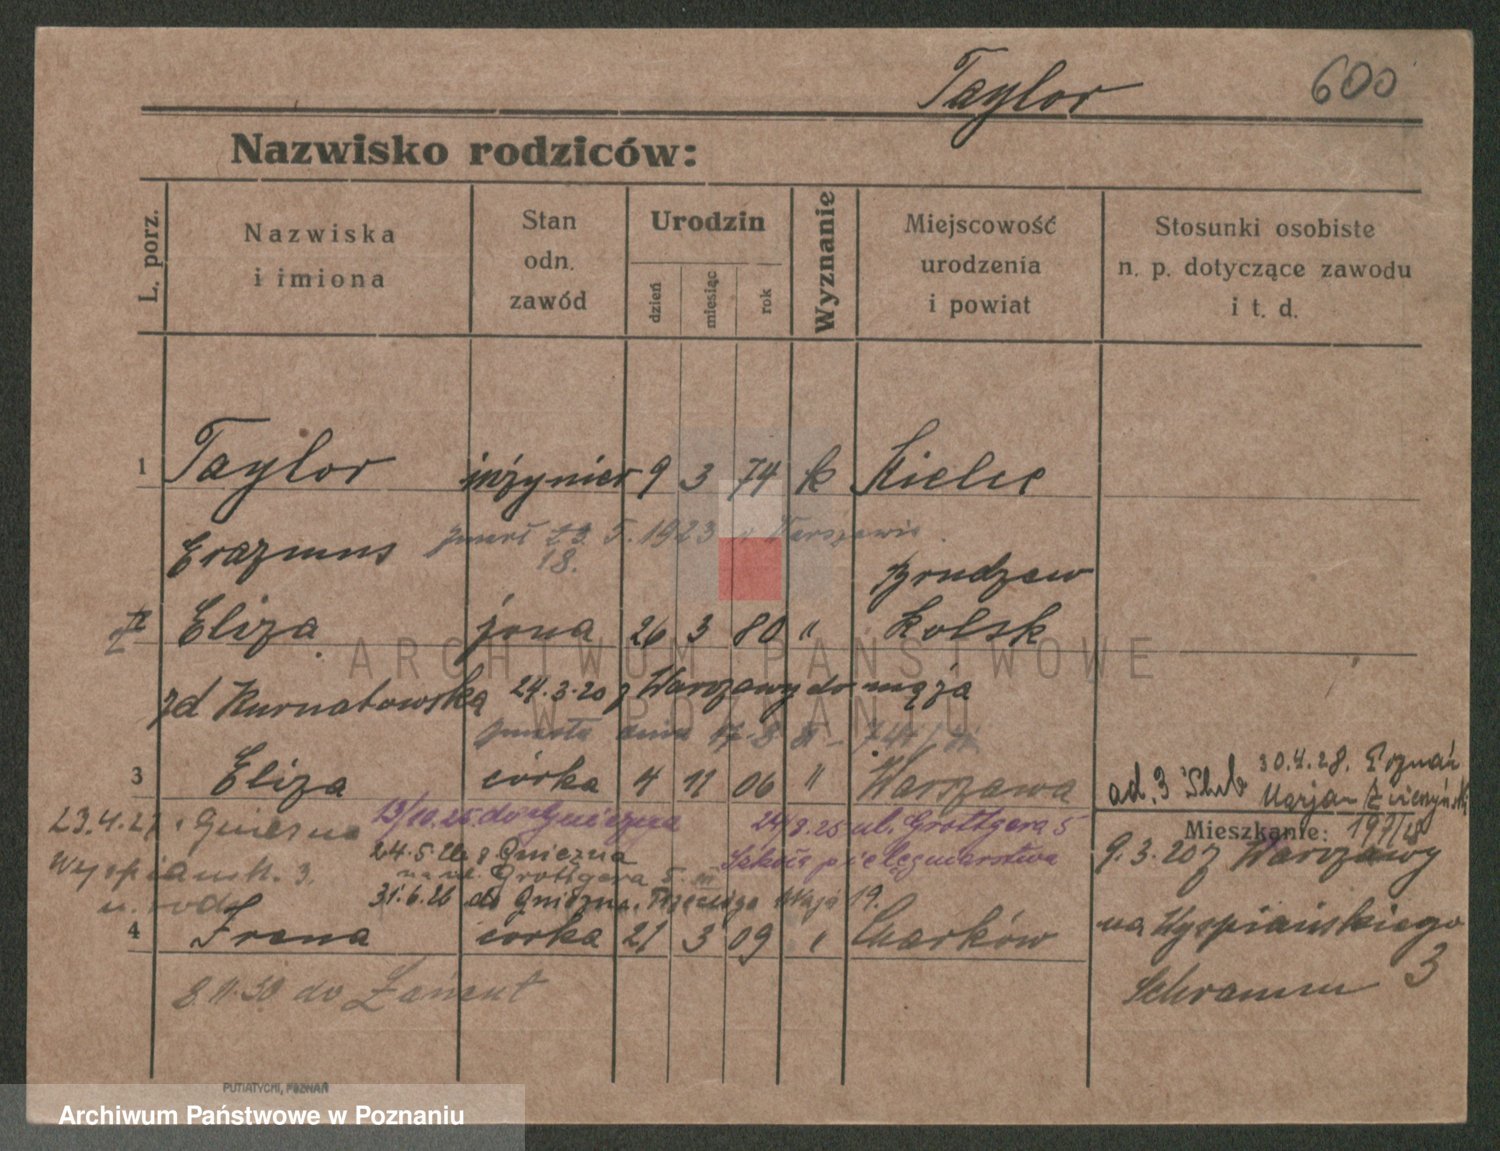 Taylor 600
Nazwisko rodziców:
L. porz.
Nazwiska
i imiona
Stan
odn.
zawód
Urodzin
dzień
miesiąc
rok
Wyznanie
Miejscowość
urodzenia
i powiat
Stosunki osobiste
n. p. dotyczące zawodu
i t. d.
1 Taylor inżynier 9 3 74 k Kielce
Erazmus zmarł 23. 5. 1923 w Warszawie.
18.
Brudzew
2 Eliza żona 26 3 80 " Kolsk
zd Kurnatowska 24.3.20 z Warszawy do męża
zmarła dnia 17.8
3 Eliza córka 4 11 06 " Warszawa
ad. 3 Ślub 30.4.28. Poznań
Marjan
197/28
23.4.27 Gniezna 13/10.25 do Gniezna 24/8.25 ul. Grottgera 5
Mieszkanie:
Wyspiańsk. 3. 24.5.26 z Gniezna Szkoła pielęgniarstwa
na ul. Grottgera 5 III
9.3.20 z Warszawy
u. rodz 31.6.26 do Gniezna, Trzeciego Maja 19.
4 Irena córka 21 3 09 " Charków
na Wyspiańskiego
3
8.11.30 do Łańcut
Schramm
PUTIATYCKI, POZNAŃ
ARCHIWUM PAŃSTWOWE
W POZNANIU
Archiwum Państwowe w Poznaniu